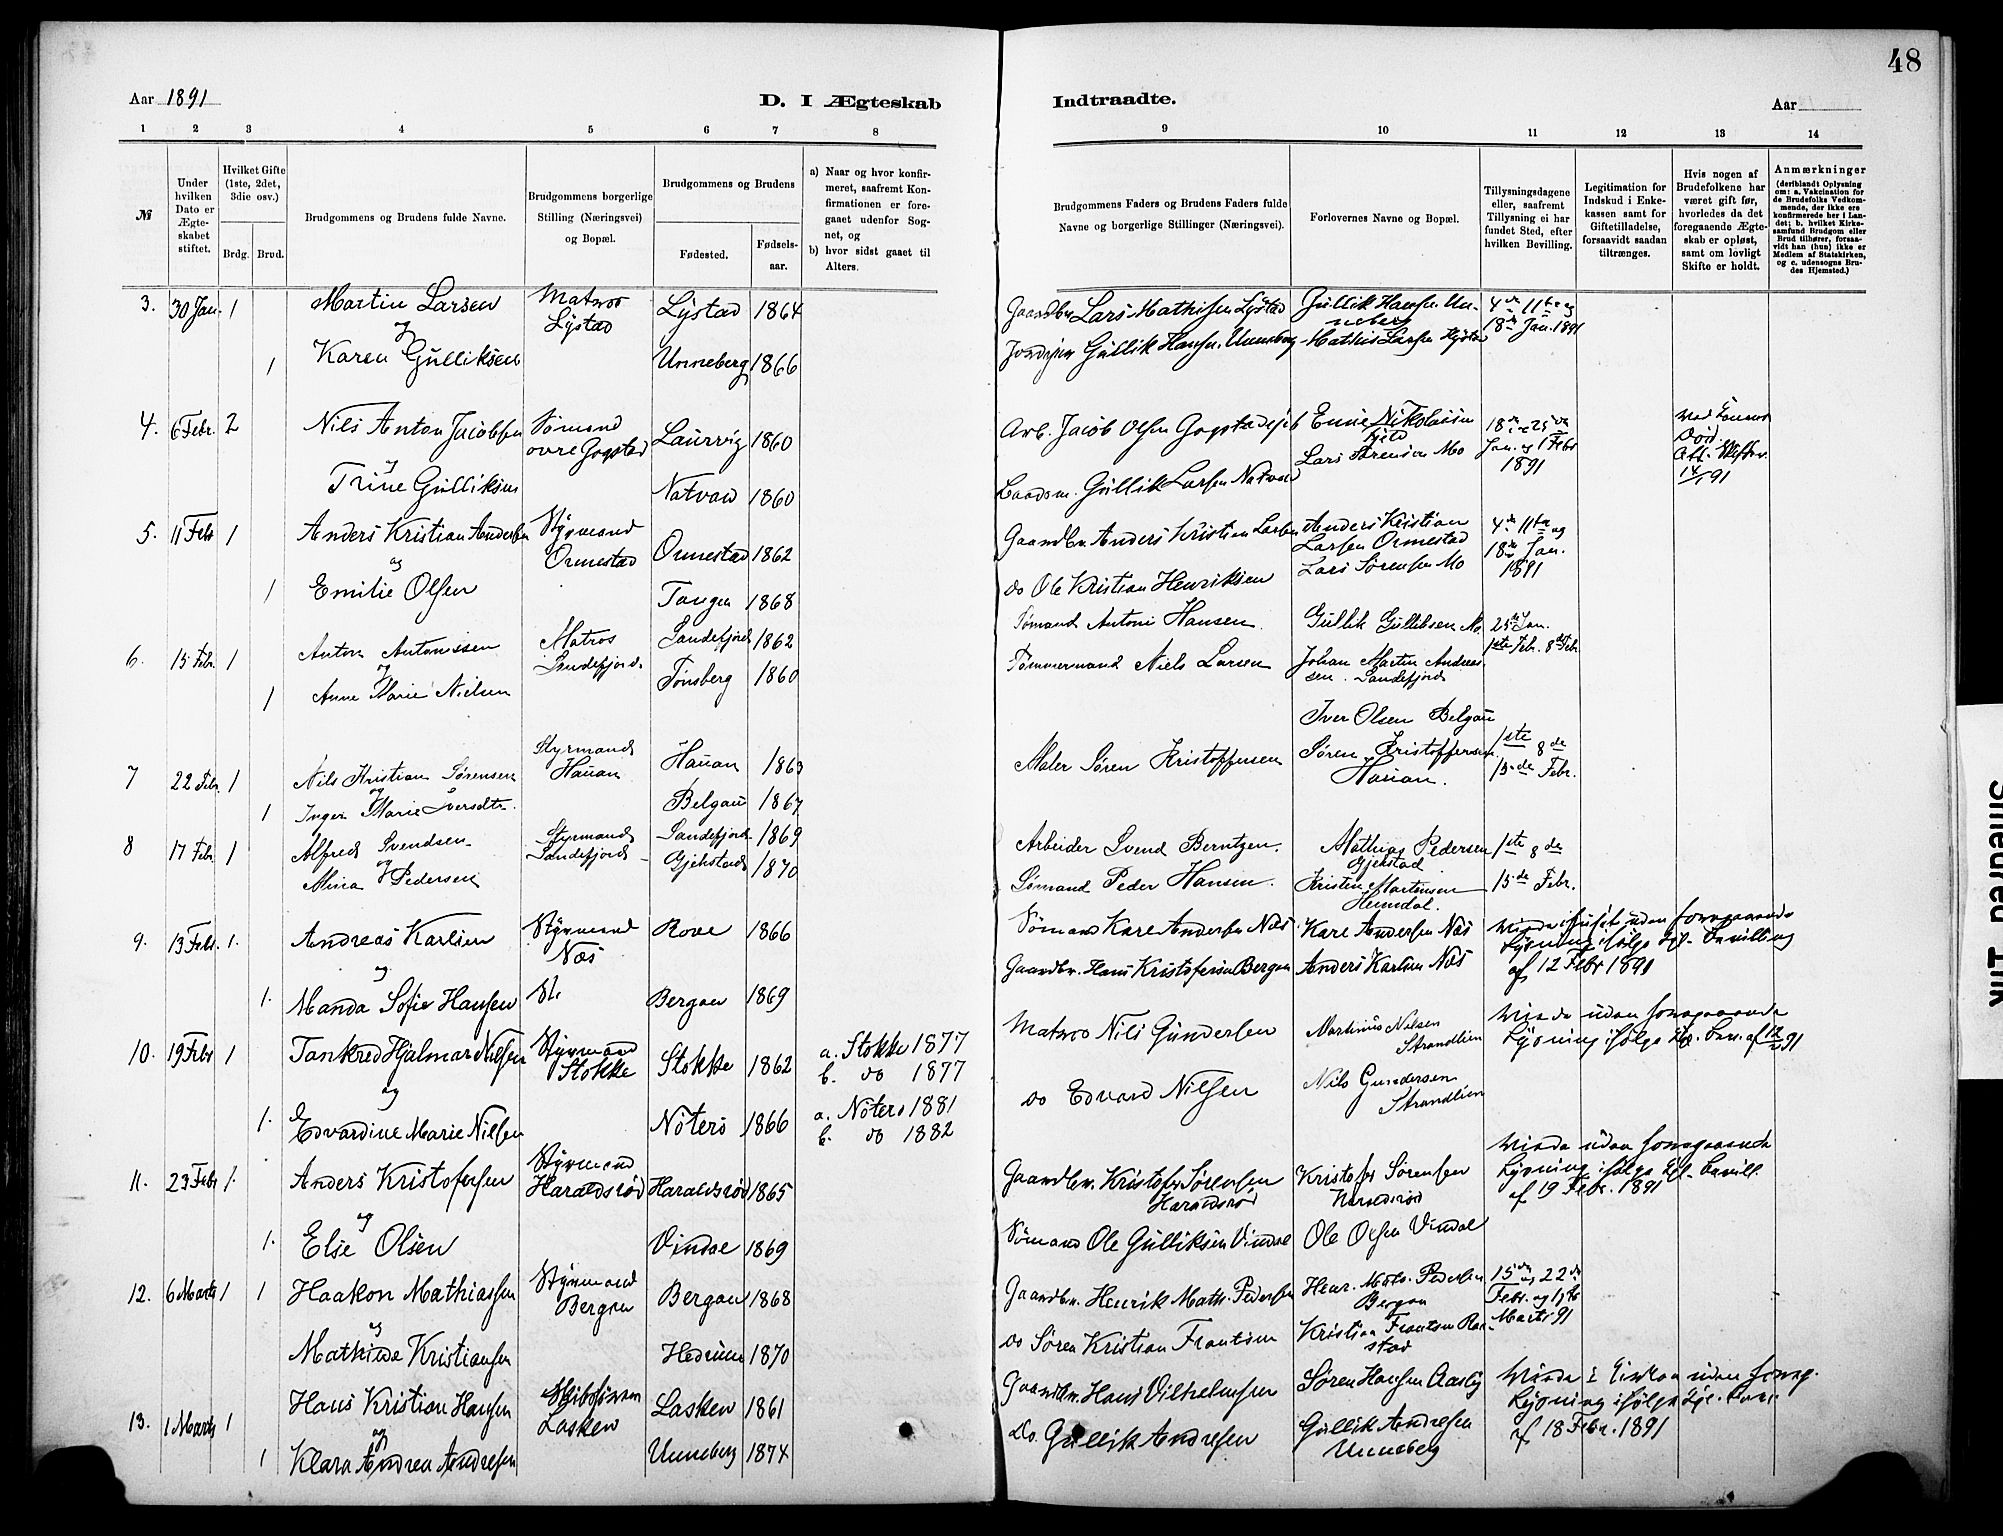 48
Aar 1891
D. I Ægteskab
Indtraadte.
Aar
1 2 3 4 5 6 7 8
9 10 11 12 13 14
№
Under hvilken Dato er Ægteskabet stiftet.
Hvilket Gifte (1ste, 2det, 3die osv.)
Brdg. Brud.
Brudgommens og Brudens fulde Navne.
Brudgommens borgerlige Stilling (Næringsvei) og Bopæl.
Brudgommens og Brudens
Fødested.
Fødsels-aar.
a) Naar og hvor konfir-
meret, saafremt Kon-
firmationen er fore-
gaaet udenfor Sog-
net, og
b) hvor sidst gaaet til
Alters.
Brudgommens Faders og Brudens Faders fulde
Navne og borgerlige Stillinger (Næringsvei).
Forlovernes Navne og Bopæl.
Tillysningsdagene
eller, saafremt
Tillysning ei har
fundet Sted, efter
hvilken Bevilling.
Legitimation for
Indskud i Enke-
kassen samt for
Giftetilladelse,
forsaavidt saadan
tiltrænges.
Hvis nogen af
Brudefolkene har
været gift før,
hvorledes da det
foregaaende Ægte-
skab er opløst,
samt om lovligt
Skifte er holdt.
Anmærkninger
(deriblandt Oplysning
om: a. Vakcination for
de Brudefolks Vedkom-
mende, der ikke ere
konfirmerede her i Lan-
det; b. hvilket Kirke-
samfund Brudgom eller
Brud tilhører, forsaa-
vidt han (hun) ikke er
Medlem af Statskirken,
og c. udensogns Bru-
des Hjemsted.)
3. 30 Jan. 1 Martin Larsen Matros Lystad Lystad 1864 Gaardbr. Lars Mathisen Lystad Gullik Hansen Unneberg 4de 11te og
og
1 Karen Gulliksen Unneberg 1866 Gullik Hansen Unneberg Mathis Larsen 18de Jan. 1891
4. 6 Febr. 2 Nils Anton Jacobsen Sømand øvre Gogstad Laurvig 1860 Arb. Jacob Olsen Nikolaisen 18de 25de
og
Trine Gulliksen Natvad 1860 Gullik Larsen Natvad Lars Sørensen Mo Jan. og 1 Febr 1891
5. 11 Febr 1 Anders Kristian Andersen Styrmand Ormestad Ormestad 1862 Gaardbr. Anders Kristian Larsen Anders Kristian Larsen Ormestad 4de 11te og
og
1 Emilie Olsen Tangen 1868 do Ole Kristian Henriksen Lars Sørensen Mo 18de Jan. 1891
6. 15 Febr. 1 Anton Antonissen Matros Sandefjord. Sandefjord 1862 Sømand Antoni Hansen. Gullik Gulliksen Mo 25de Jan.
og
1 Anne Marie Nielsen Tønsberg 1860 Tømmermand Niels Larsen Johan Martin Andreassen. Sandefjord 1ste Febr. 8de Febr.
Iver Olsen Belgau
7 22 Febr. 1 Nils Kristian Sørensen Styrmand Hauan Hauan 1863 Maler Søren Kristoffersen Søren Kristoffersen Hauan. 1ste 8de
og
1 Inger Marie Iversdtr. Belgau 1867 15de Febr.
8 17 Febr 1 Alfred Svendsen Styrmand Sandefjord Sandefjord 1869 Arbeider Svend Berntzen. Mathias Pedersen Gjekstad 1ste 8de
og
Mina Pedersen Gjekstad 1870 Sømand Peder Hansen. Kristen Martinsen Heimdal. 15de Febr.
9. 13 Febr. 1. Andreas Karlsen Styrmand Næs Rove 1866 Sømand Kare Andersen Næs Kare Andersen Næs Viede i Huset uden foregaaende
og
1. Manda Sofie Hansen Bergan 1869 Gaardbr. Hans Kristofersen Bergan Anders Karlsen Næs Lysning ifølge Bevilling
af 12 Febr 1891
10. 19 Febr 1 Tankred Hjalmar Nilsen Styrmand Stokke Stokke 1862 a. Stokke 1877 b. do 1877 Matros Nils Gundersen Martinus Nilsen Strandlien Viede uden foregaaende
og
1. Edvardine Marie Nilsen Nøterø 1866 a. Nøterø 1881 b. do 1882 do Edvard Nilsen Nils Gundersen Strandlien Lysning ifølge
11. 23 Febr 1. Anders Kristofersen Styrmand Haraldsrød Haraldsrød 1865 Gaardbr. Kristofer Sørensen Haraldsrød Kristofer Sørensen Haraldsrød Viede uden foregaaende
og
1. Else Olsen Vindal 1869 Sømand Ole Gulliksen Vindal Ole Olsen Vindal Lysning ifølge Bevill.
af 19 Febr. 1891
12. 6 Marts 1 1 Haakon Mathiassen Styrmand Bergan Bergan 1868 Gaardbr. Henrik Math. Pedersen Henr. Math. Pedersen Bergan 15de og 22de
og
Mathilde Kristiansen Hedrum 1870 do Søren Kristian Frantsen Kristian Frantsen Febr. og 1ste Marts 91
13. 1 Marts 1 Hans Kristian Hansen Lasken Lasken 1861 Gaardbr. Hans Vilhelmsen Søren Hansen Aasly Viede i Kirken uden foreg.
og
1 Klara Andrea Andresen Unneberg 1874 Do. Gullik Andresen Gullik Andresen Unneberg Lysning ifølge
af 18 Febr. 1891